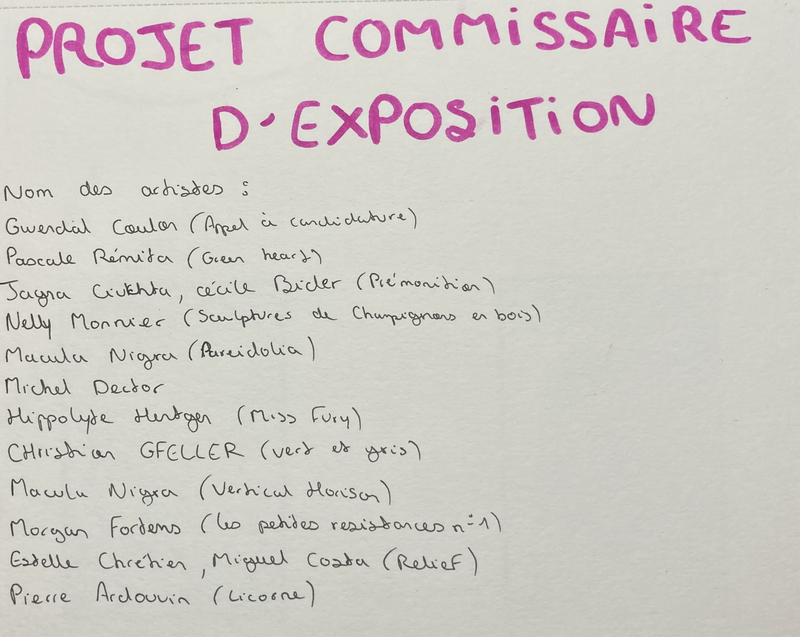 PROJET COMMISSAIRE
D'EXPOSITION
Nom des artistes :
Gwendal Coulon (Appel à candidature)
Pascale Rémita (Green heart)
Jagna Ciukhta, cécile Bicler (Prémonition)
Nelly Monnier (Sculptures de Champignons en bois)
Macula Nigra (Pareidolia)
Michel Dector
Hippolyte Hentgen (Miss Fury)
CHristian GFELLER (vert et gris)
Macula Nigra (Vertical Horison)
Morgan Fortems (les petites resistances n°1)
Estelle Chrétien, Miguel Costa (Relief)
Pierre Ardouvin (Licorne)